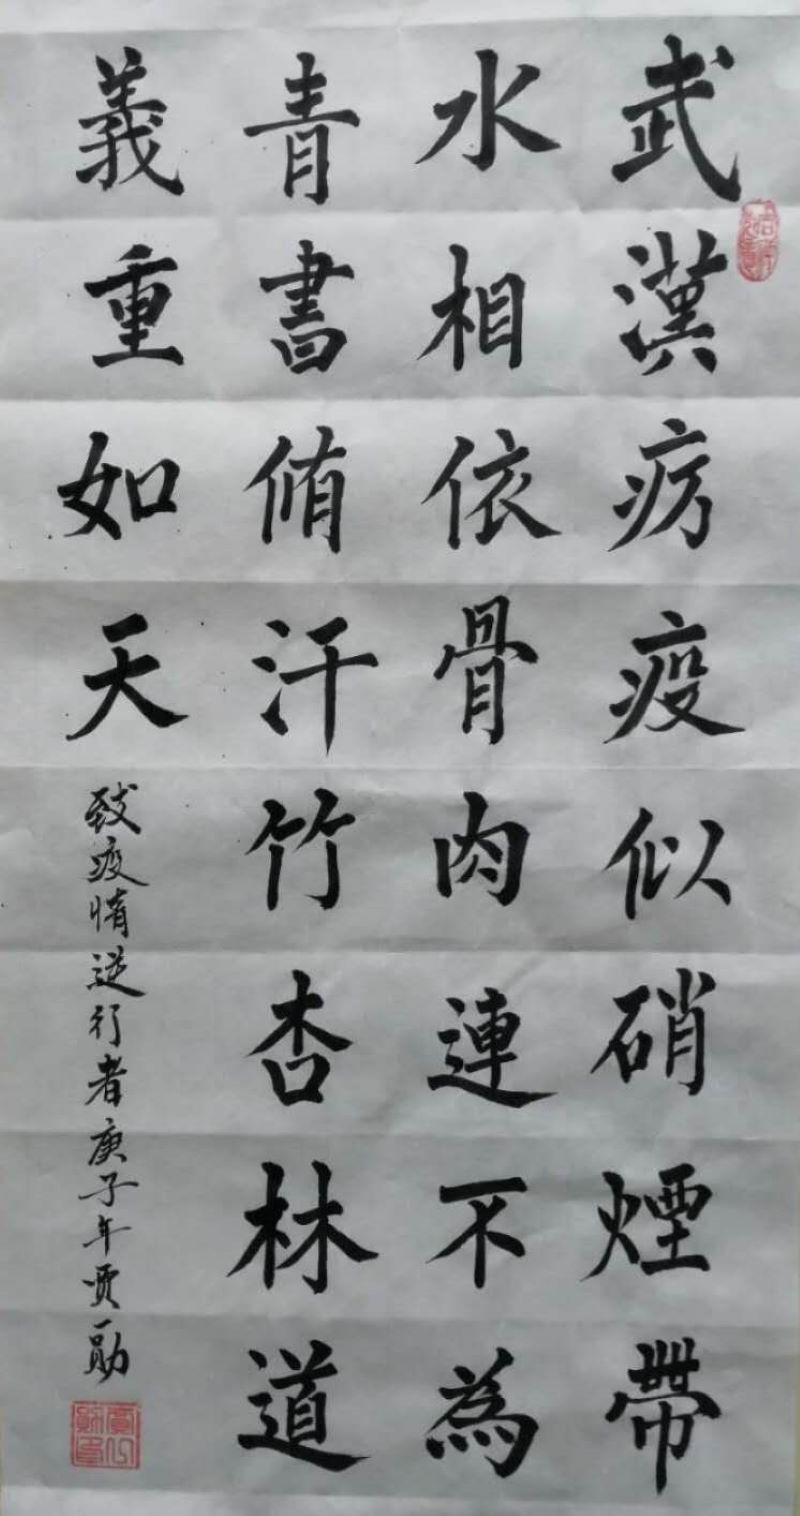 武漢疠疫似硝煙帶
水相依骨肉連不為
青書脩汗竹杏林道
義重如天
致疫情逆行者庚子年贾勛